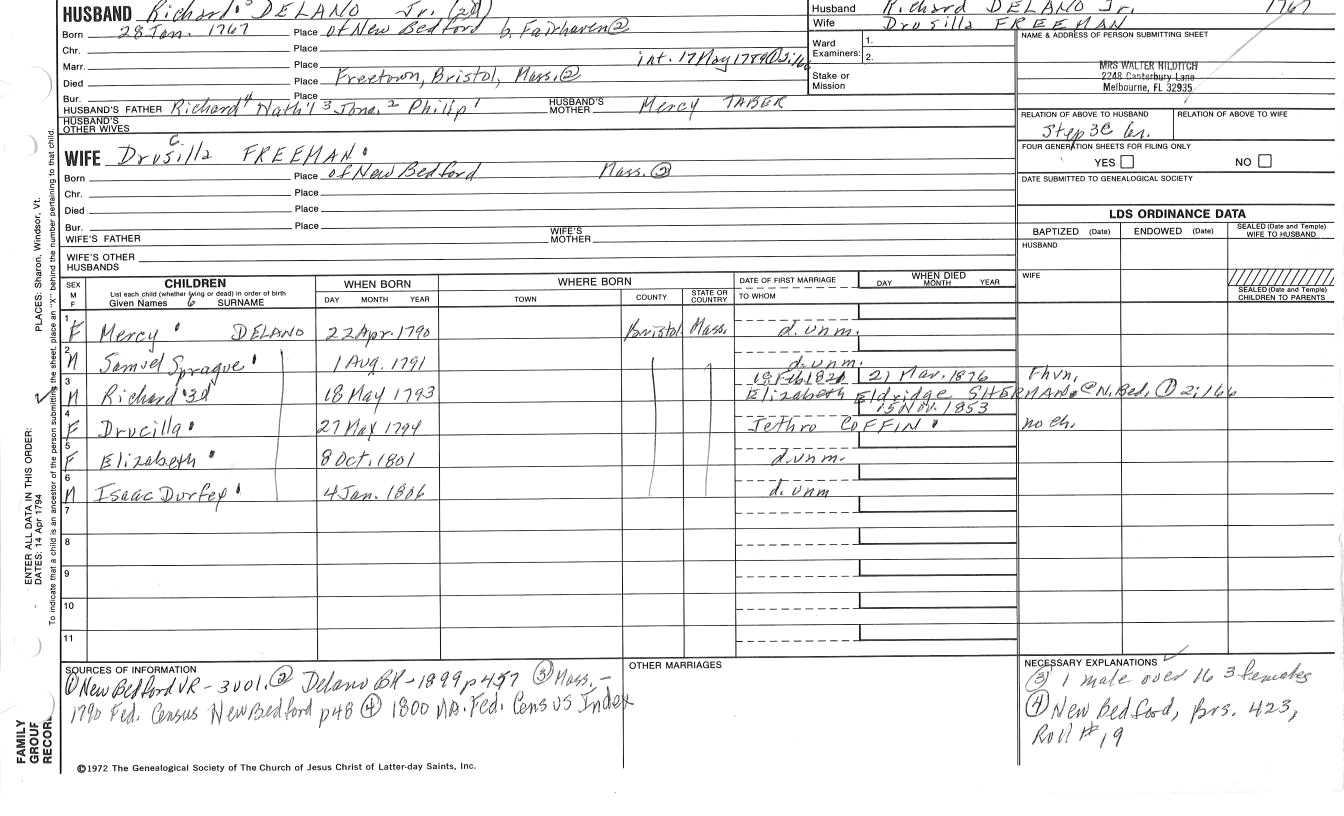 HUSBAND Richard 5 DELANO Jr. (2d)
Born 28 Jan. 1767 Place of New Bedford b. Fairhaven ②
Chr. Place
Marr. Place int. 17 May 1789 ①
Died Place Freetown, Bristol, Mass. ②
Bur. Place
HUSBAND'S FATHER Richard 4 Nath'l 3 Jona. 2 Philip 1 HUSBAND'S MOTHER Mercy TABER
HUSBAND'S OTHER WIVES
WIFE Drusilla C. FREEMAN
Born Place of New Bedford Mass. ②
Chr. Place
Died Place
Bur. Place
WIFE'S FATHER WIFE'S MOTHER
WIFE'S OTHER HUSBANDS
Husband Richard DELANO Jr. 1767
Wife Drusilla FREEMAN
Ward Examiners: 1. 2.
Stake or Mission
NAME & ADDRESS OF PERSON SUBMITTING SHEET
MRS WALTER HILDITCH
2248 Canterbury Lane
Melbourne, FL 32935
RELATION OF ABOVE TO HUSBAND RELATION OF ABOVE TO WIFE
Step 3C
FOUR GENERATION SHEETS FOR FILING ONLY
YES NO
DATE SUBMITTED TO GENEALOGICAL SOCIETY
LDS ORDINANCE DATA
BAPTIZED (Date) ENDOWED (Date) SEALED (Date and Temple) WIFE TO HUSBAND
HUSBAND
WIFE
SEALED (Date and Temple) CHILDREN TO PARENTS
SEX M F
CHILDREN
List each child (whether living or dead) in order of birth
Given Names 6 SURNAME
WHEN BORN
DAY MONTH YEAR
WHERE BORN
TOWN COUNTY STATE OR COUNTRY
DATE OF FIRST MARRIAGE
TO WHOM
WHEN DIED
DAY MONTH YEAR
1 F Mercy DELANO 22 Apr. 1790 Bristol Mass. d. unm.
2 M Samuel Sprague 1 Aug. 1791 d. unm.
3 M Richard 3d 18 May 1793 21 Mar. 1876 Fhvn,
Elizabeth Eldridge SHERMAN @ N. Bed, ① 2;166
4 F Drucilla 27 May 1794 15 Nov. 1853
Jethro COFFIN no ch.
5 F Elizabeth 8 Oct. 1801 d. unm.
6 M Isaac Durfey 4 Jan. 1806 d. unm
7
8
9
10
11
SOURCES OF INFORMATION
① New Bedford VR - 3 vol. ② Delano GH - 1899 p 457 ③ Mass. -
1790 Fed. Census New Bedford p 48 ④ 1800 MA. Fed. Census Index
OTHER MARRIAGES
NECESSARY EXPLANATIONS
③ 1 male over 16 3 females
④ New Bedford, Brs. 423,
Roll # 19
©1972 The Genealogical Society of The Church of Jesus Christ of Latter-day Saints, Inc.
FAMILY GROUP RECORD
ENTER ALL DATA IN THIS ORDER:
DATES: 14 Apr 1794
PLACES: Sharon, Windsor, Vt.
To indicate that a child is an ancestor of the person submitting the sheet, place an "X" behind the number pertaining to that child.